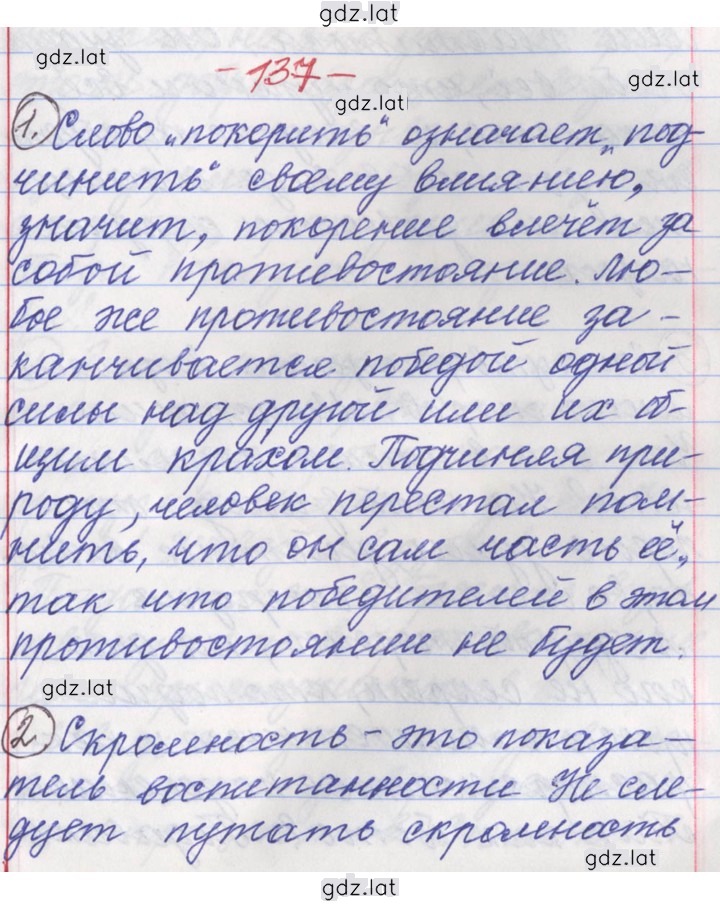 gdz.lat
gdz.lat
- 137 -
gdz.lat
gdz.lat
1. Слово „покорить“ означает „под-
чинить“ своему влиянию,
значит, покорение влечёт за
собой противостояние. Лю-
бое же противостояние за-
канчивается победой одной
силы над другой или их об-
щим крахом. Подчиняя при-
роду, человек перестал пом-
нить, что он сам часть её,
так что победителей в этом
противостоянии не будет.
gdz.lat
2. Скромность - это показа-
тель воспитанности Не сле-
дует путать скромность
gdz.lat
gdz.lat